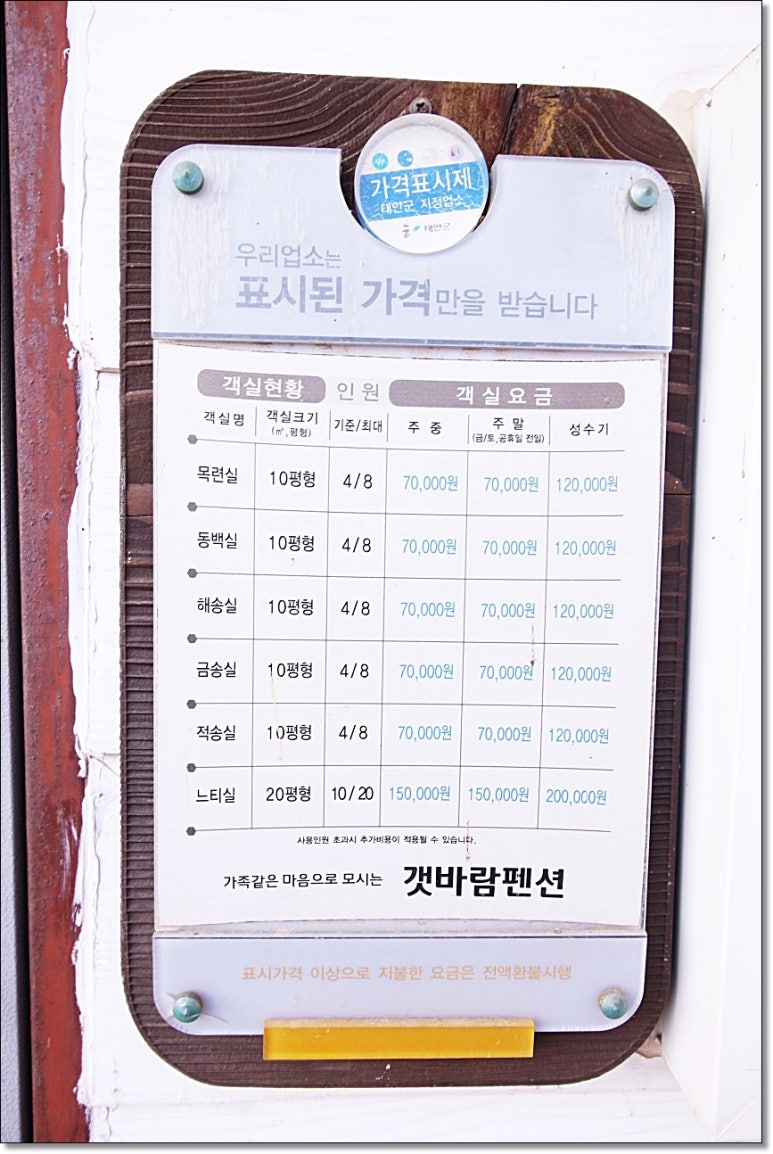 가격표시제
태안군 지정업소
태안군
우리업소는
표시된 가격만을 받습니다
객실현황 인원 객실요금
객실명 객실크기 (㎡,평형) 기준/최대 주 중 주 말 (금/토,공휴일 전일) 성수기
목련실 10평형 4/8 70,000원 70,000원 120,000원
동백실 10평형 4/8 70,000원 70,000원 120,000원
해송실 10평형 4/8 70,000원 70,000원 120,000원
금송실 10평형 4/8 70,000원 70,000원 120,000원
적송실 10평형 4/8 70,000원 70,000원 120,000원
느티실 20평형 10/20 150,000원 150,000원 200,000원
사용인원 초과시 추가비용이 적용될 수 있습니다.
가족같은 마음으로 모시는 갯바람펜션
표시가격 이상으로 지불한 요금은 전액환불시행